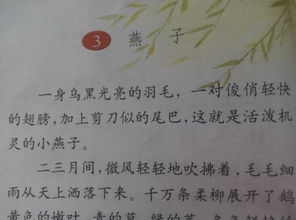 3 燕子
一身乌黑光亮的羽毛，一对俊俏轻快
的翅膀，加上剪刀似的尾巴，这就是活泼机
灵的小燕子。
二三月间，微风轻轻地吹拂着，毛毛细
雨从天上洒落下来。千万条柔柳展开了鹅
黄色的嫩叶。青的草，绿的草，各色鲜艳的